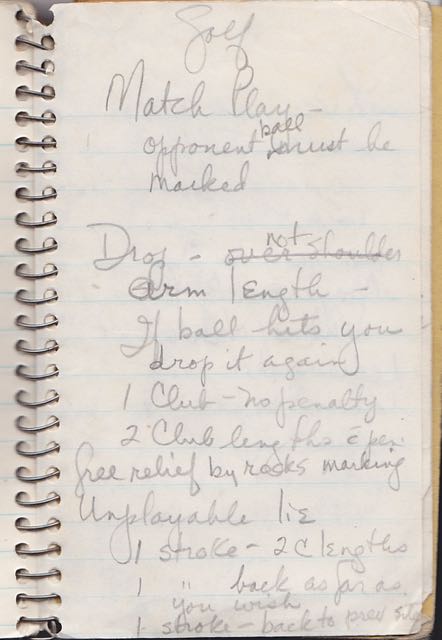 Golf
Match Play -
ball
opponent must be
marked
not
Drop - over shoulder
Arm length -
If ball hits you
drop it again
1 Club - no penalty
2 Club lengths c̄ pen.
free relief by rocks marking
Unplayable lie
1 stroke - 2 C lengths
1 " back as far as
you wish
1 stroke - back to prev site